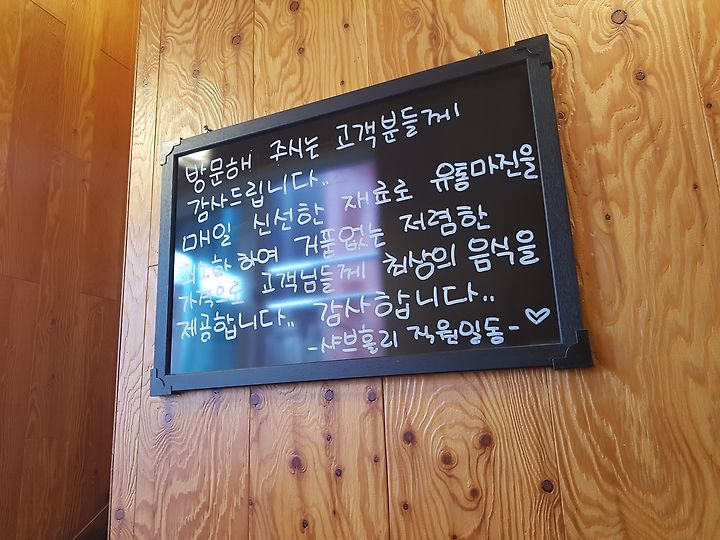 방문해 주시는 고객분들께
감사드립니다..
매일 신선한 재료로 유통마진을
최소화 하여 거품없는 저렴한
가격으로 고객님들께 최상의 음식을
제공합니다.. 감사합니다..
-샤브홀리 직원일동- ♡